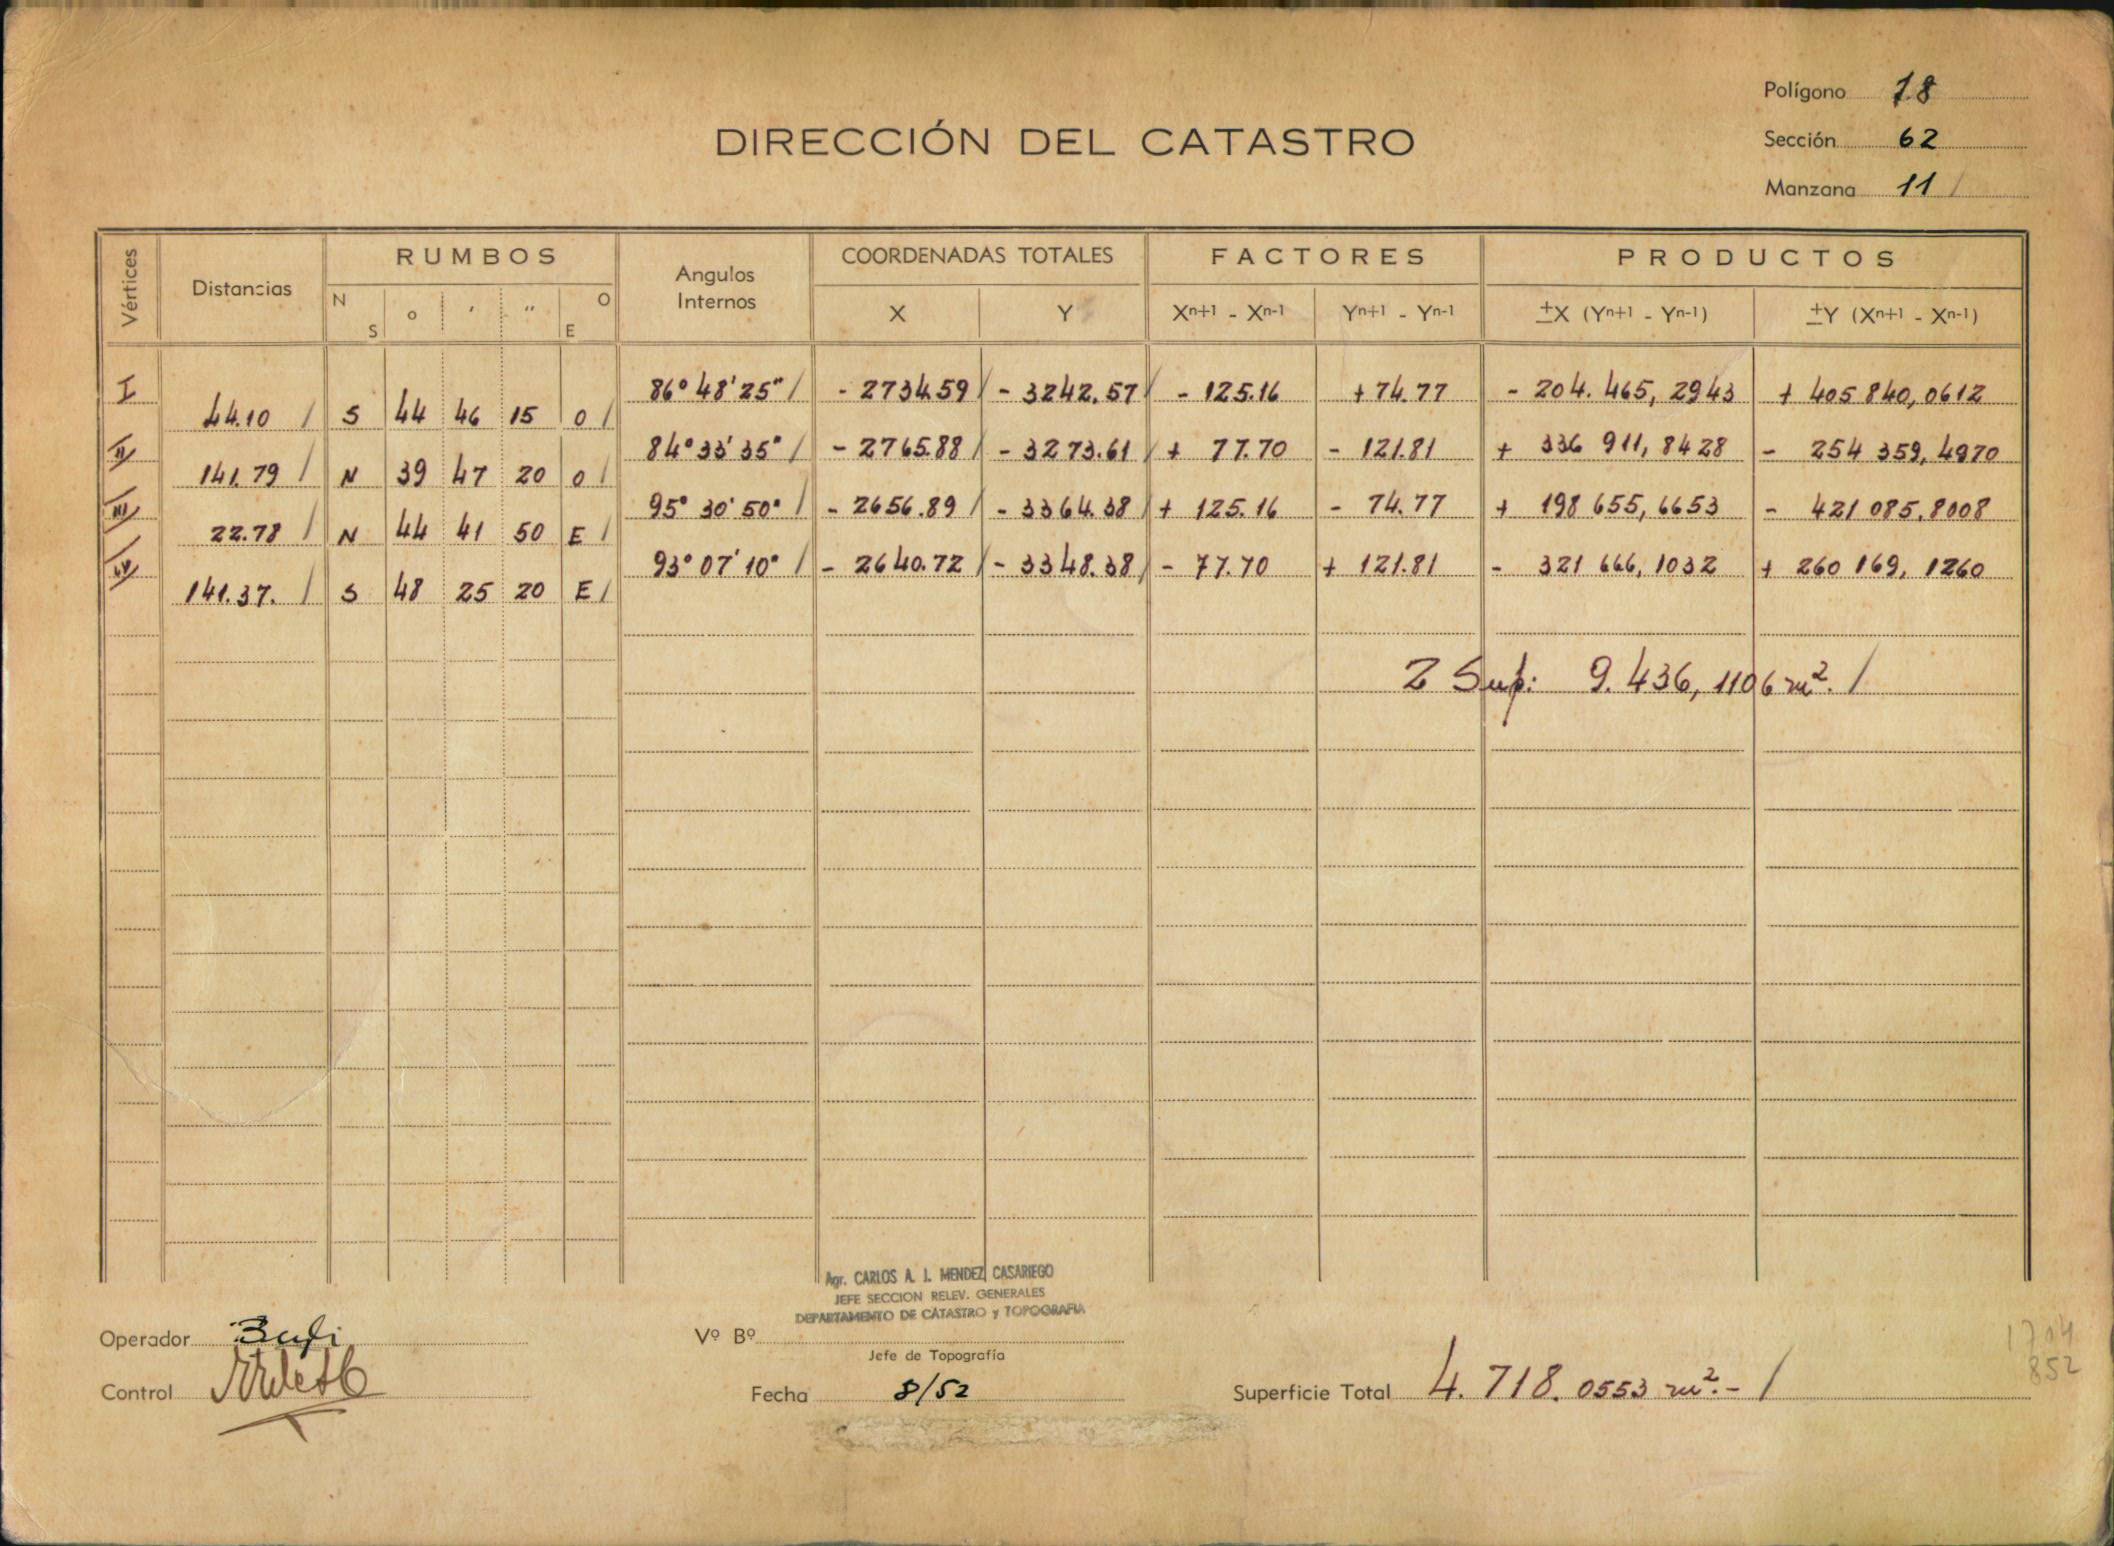 Polígono 18
DIRECCIÓN DEL CATASTRO
Sección 62
Manzana 11 /
Vértices Distancias RUMBOS Angulos Internos COORDENADAS TOTALES FACTORES PRODUCTOS
N S o ' " O E X Y Xn+1 - Xn-1 Yn+1 - Yn-1 ±X (Yn+1 - Yn-1) ±Y (Xn+1 - Xn-1)
I 86° 48' 25" / - 2734.59 / - 3242.57 / - 125.16 + 74.77 - 204.465,2943 + 405 840,0612
44.10 / S 44 46 15 O /
II 84° 33' 35" / - 2765.88 / - 3273.61 / + 77.70 - 121.81 + 336 911,8428 - 254 359,4970
141.79 / N 39 47 20 O /
III 95° 30' 50" / - 2656.89 / - 3364.38 / + 125.16 - 74.77 + 198 655,6653 - 421 085,8008
22.78 / N 44 41 50 E /
IV 93° 07' 10" / - 2640.72 / - 3348.38 / - 77.70 + 121.81 - 321 666,1032 + 260 169,1260
141.37. / S 48 25 20 E /
2 Sup: 9.436,1106 m². /
Agr. CARLOS A. J. MENDEZ CASARIEGO
JEFE SECCION RELEV. GENERALES
DEPARTAMENTO DE CATASTRO y TOPOGRAFIA
Operador
Vº Bº
Jefe de Topografía
Control
Fecha 8/52
Superficie Total 4.718.0553 m².- /
1704
852